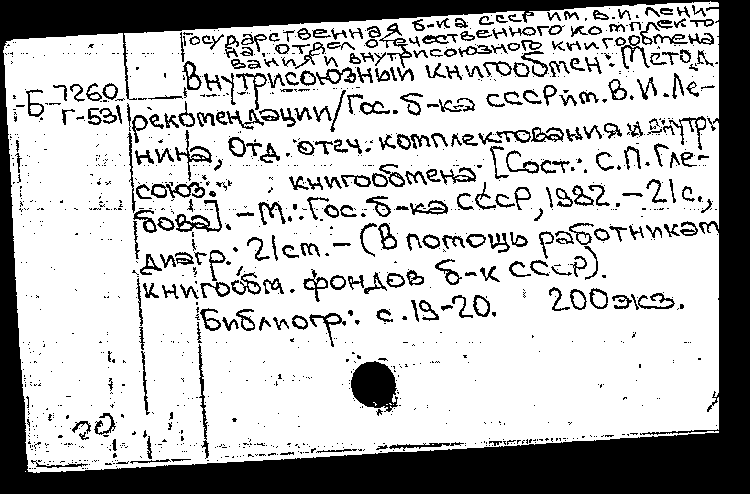 Государственная б-ка СССР им. В.И. Лени-
на. Отдел отечественного комплекто-
вания и внутрисоюзного книгообмена
Внутрисоюзный книгообмен: Метод.
Б 7260
Г-531
рекомендации/Гос. б-ка СССР им. В.И. Ле-
нина, Отд. отеч. комплектования и внутри
союз. книгообмена; [Сост.: С.П. Гле-
бова]. – М.: Гос. б-ка СССР, 1982. – 21 с.,
диагр.; 21 cm. – (В помощь работникам
книгообм. фондов б-к СССР).
Библиогр.: с. 19-20. 200 экз.
20